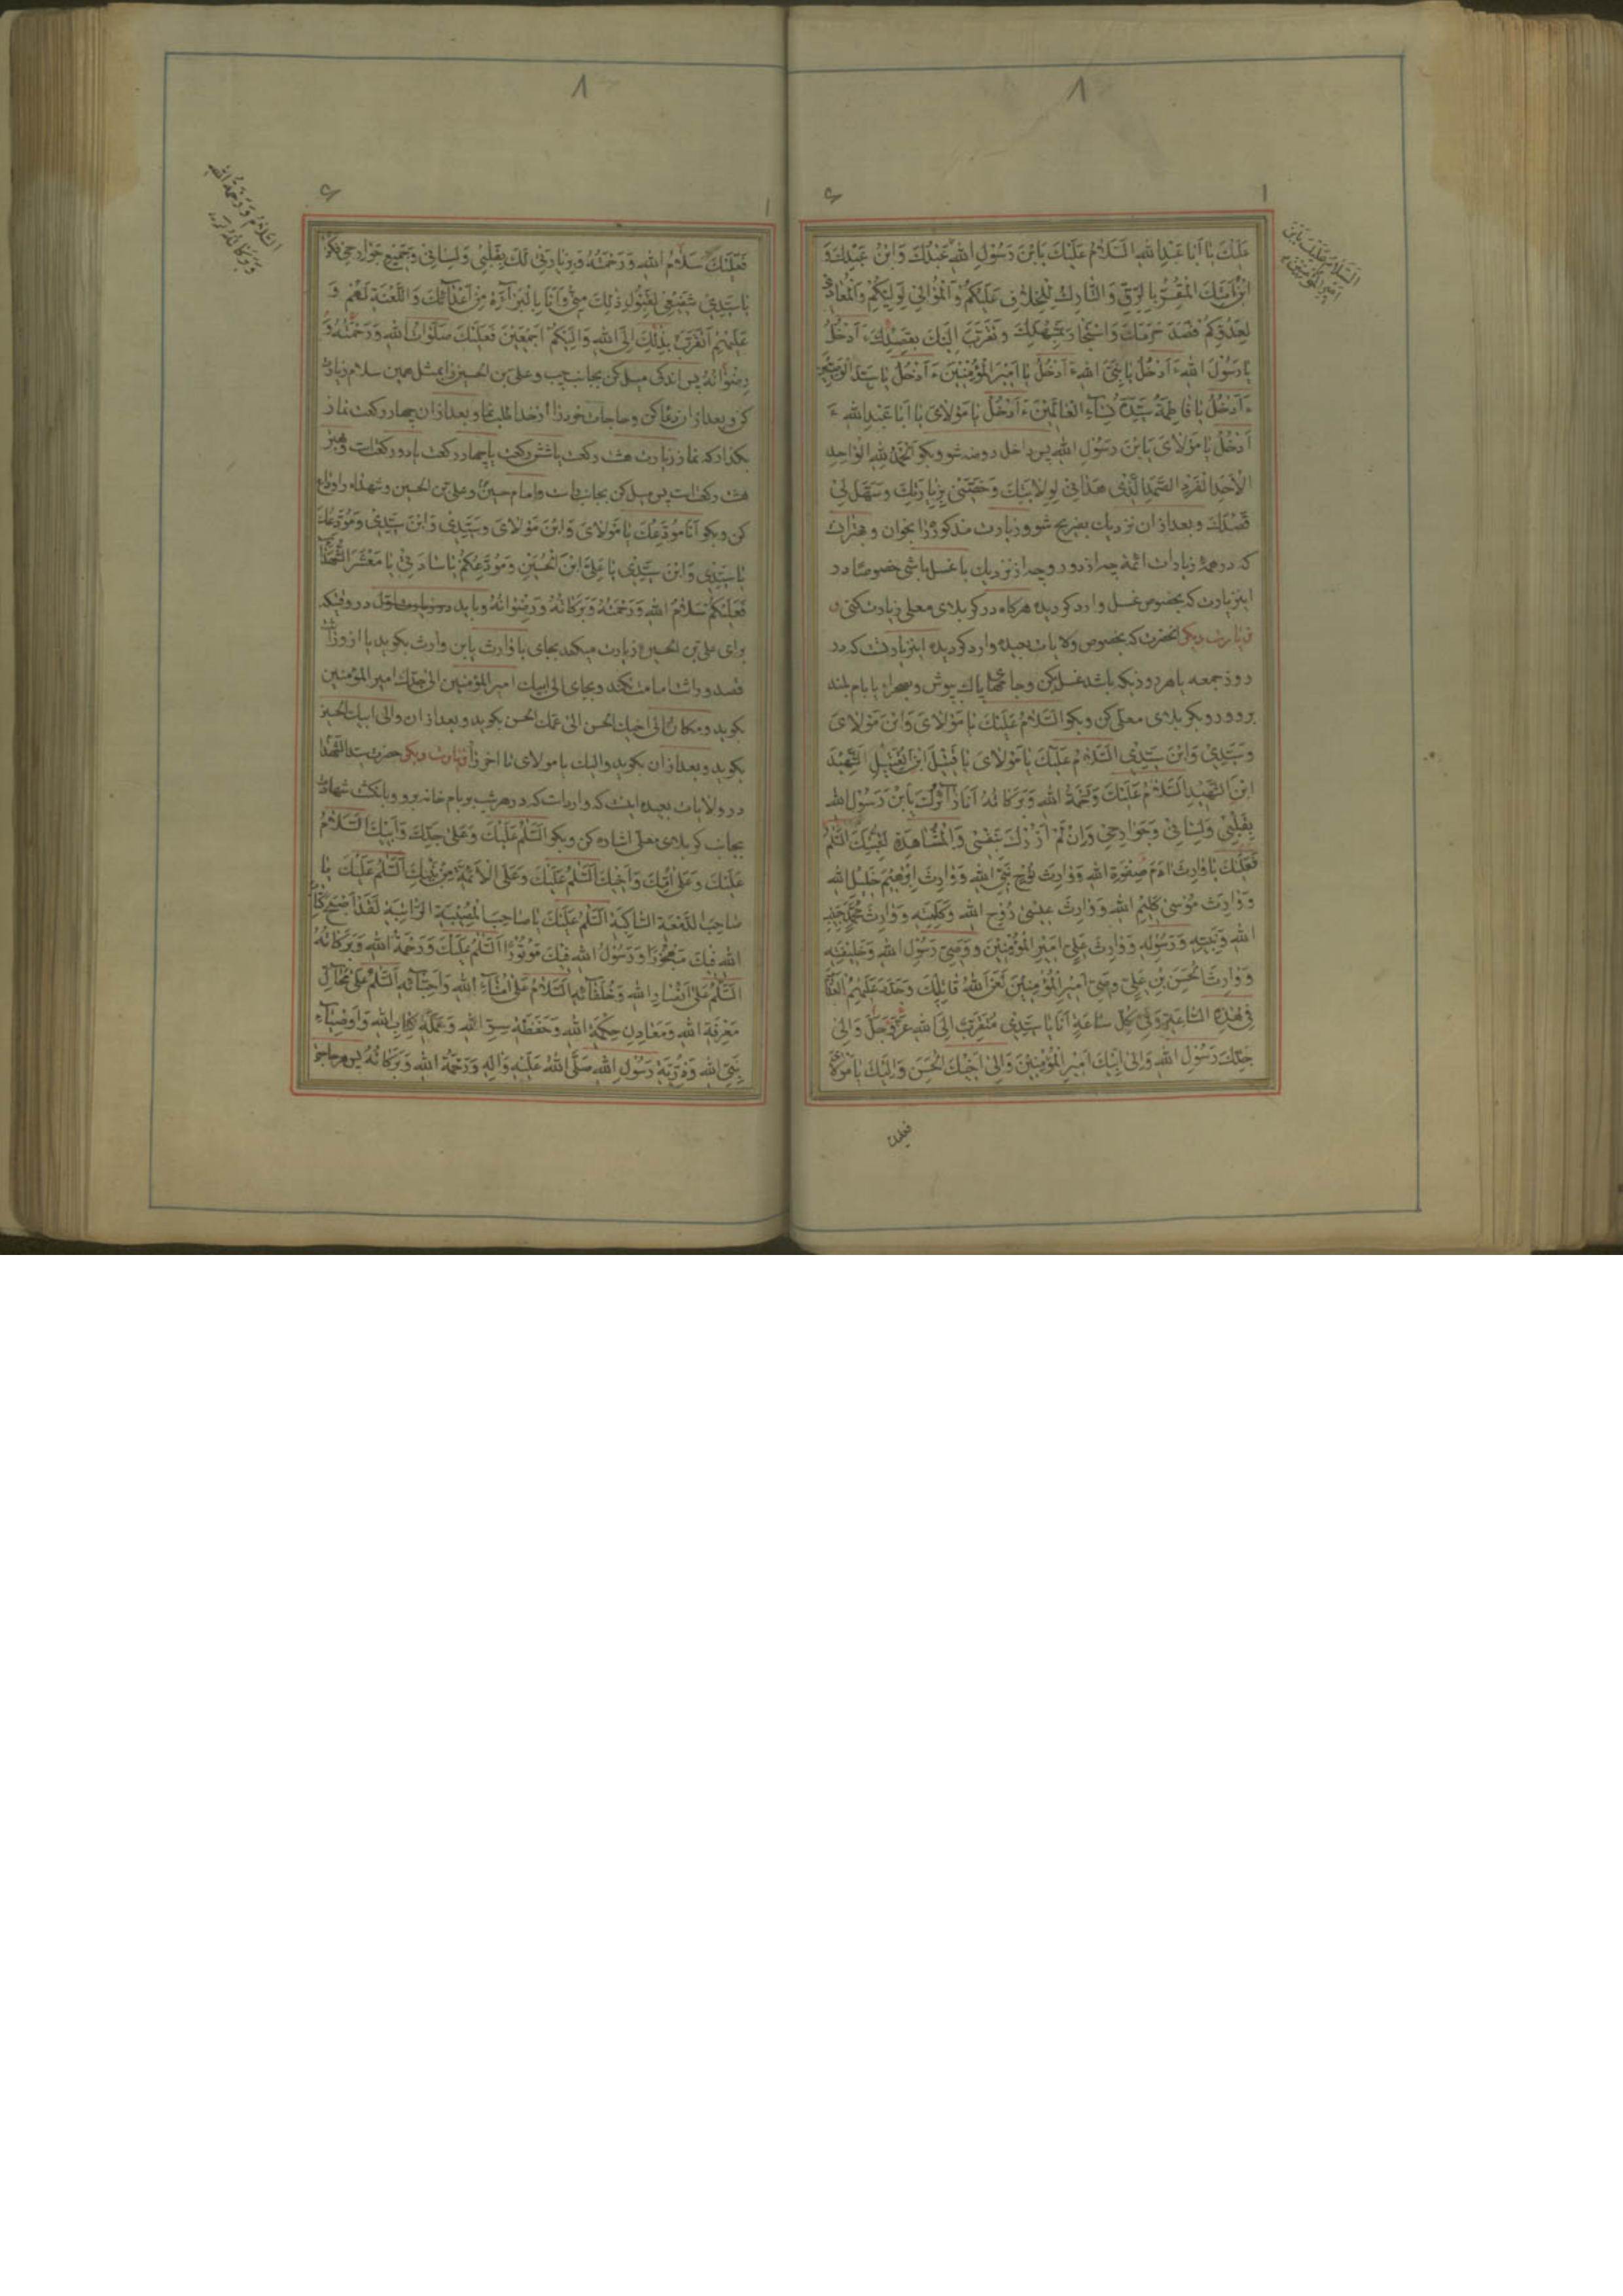 ٨
السلام عليك يابن
امير المؤمنين
عَلَيْكَ يا اَبا عَبْدِ اللهِ اَلسَّلامُ عَلَيْكَ يَابْنَ رَسُولِ اللهِ عَبْدُكَ وَابْنُ عَبْدِكَ وَ
ابْنُ اَمَتِكَ الْمُقِرُّ بِالرِّقِّ وَ التّارِكُ لِلْخِلافِ عَلَيْكُمْ وَ الْمُوالي لِوَلِيِّكُمْ وَالْمُعادي
لِعَدُوِّكُمْ قَصَدَ حَرَمَكَ وَ اسْتَجارَ بِمَشْهَدِكَ وَ تَقَرَّبَ اِلَيْكَ بِقَصْدِكَ ءَاَدْخُلُ
يا رَسُولَ اللهِ ءَاَدْخُلُ يا نَبِيَّ اللهِ ءَاَدْخُلُ يا اَميرَ الْمُؤْمِنينَ ءَاَدْخُلُ يا سَيِّدَ الْوَصِيّينَ
ءَاَدْخُلُ يا فاطِمَةُ سَيِّدَةَ نِساءِ الْعالَمينَ ءَاَدْخُلُ يا مَوْلايَ يا اَبا عَبْدِ اللهِ ءَ
اَدْخُلُ يا مَوْلايَ يَابْنَ رَسُولِ اللهِ پس داخل روضه شو و بكو اَلْحَمْدُ لِلّهِ الْواحِدِ
الْاَحَدِ الْفَرْدِ الصَّمَدِ الَّذي هَداني لِوِلايَتِكَ وَ خَصَّني بِزِيارَتِكَ وَ سَهَّلَ لي
قَصْدَكَ و بعد از ان نزديك بضريح شو و زيارت مذكور را بخوان و بهتر ان
كه در همهٔ زيارات ائمه چه از دور و چه از نزديك با غسل باشى خصوصا در
اين زيارت كه بخصوص غسل وارد كرديده هركاه در كربلاى معلى زيارت كنى
زيارت ديكر انحضرت كه بخصوص ولايات بعيده وارد كرديده اين زيارتست كه در
روز جمعه يا هر روز كه باشد غسل كن و جامهاى پاك بپوش و بصحرا يا بام بلند
برو و رو بكربلاى معلى كن و بكو اَلسَّلامُ عَلَيْكَ يا مَوْلايَ وَابْنَ مَوْلايَ
وَ سَيِّدي وَابْنَ سَيِّدي اَلسَّلامُ عَلَيْكَ يا مَوْلايَ يا قَتيلَ ابْنَ الْقَتيلِ الشَّهيدَ
ابْنَ الشَّهيدِ اَلسَّلامُ عَلَيْكَ وَ رَحْمَةُ اللهِ وَ بَرَكاتُهُ اَنَا زائِرُكَ يَابْنَ رَسُولِ اللهِ
بِقَلْبي وَ لِساني وَ جَوارِحي وَ اِنْ لَمْ اَزُرْكَ بِنَفْسي وَ الْمُشاهَدَةِ لِقُبَّتِكَ السَّلامُ
فَعَلَيْكَ يا وارِثَ ادَمَ صَفْوَةِ اللهِ وَ وارِثَ نُوحٍ نَبِيِّ اللهِ وَ وارِثَ اِبْرهيمَ خَليلِ اللهِ
وَ وارِثَ مُوسى كَليمِ اللهِ وَ وارِثَ عيسى رُوحِ اللهِ وَ كَلِمَتِهِ وَ وارِثَ مُحَمَّدٍ حَبيبِ
اللهِ وَ نَبِيِّهِ وَ رَسُولِهِ وَ وارِثَ عَلِيٍّ اَميرِ الْمُؤْمِنينَ وَ وَصِيِّ رَسُولِ اللهِ وَ خَليفَتِهِ
وَ وارِثَ الْحَسَنِ بْنِ عَلِيٍّ وَصِيِّ اَميرِ الْمُؤْمِنينَ لَعَنَ اللهُ قاتِلِكَ وَ جَدَّدَ عَلَيْهِمُ الْعَذابَ
في هذِهِ السّاعَةِ وَ في كُلِّ ساعَةٍ اَنَا يا سَيِّدي مُتَقَرِّبٌ اِلَى اللهِ عَزَّ وَ جَلَّ وَ اِلى
جَدِّكَ رَسُولِ اللهِ وَ اِلى اَبيكَ اَميرِ الْمُؤْمِنينَ وَ اِلى اَخيكَ الْحَسَنِ وَ اِلَيْكَ يا مَوْلايَ
فعليك
٨
السلام و رحمة الله
و بركاته
فَعَلَيْكَ سَلامُ اللهِ وَ رَحْمَتُهُ بِزِيارَتي لَكَ بِقَلْبي وَ لِساني وَ جَميعِ جَوارِحي فَكُنْ
يا سَيِّدي شَفيعي لِقَبُولِ ذلِكَ مِنّي وَ اَنَا بِالْبَراءَةِ مِنْ اَعْدائِكَ وَ اللَّعْنَةِ لَهُمْ وَ
عَلَيْهِمْ اَتَقَرَّبُ بِذلِكَ اِلَى اللهِ وَ اِلَيْكُمْ اَجْمَعينَ فَعَلَيْكَ صَلَواتُ اللهِ وَ رَحْمَتُهُ وَ
رِضْوانُهُ پس اندكى ميل كن بجانب چپ و على بن الحسين را بمثل همين سلام زيارت
كن و بعد از ان دعا كن و حاجات خود را از خدا طلب نما و بعد از ان چهار ركعت نماز
بكذار كه نماز زيارت هشت ركعت يا شش ركعت يا چهار ركعت يا دو ركعت است و بهتر
هشت ركعت است پس ميل كن بجانب و امام حسين و على بن الحسين و شهدا را وداع
كن و بكو اَنَا مُوَدِّعُكَ يا مَوْلايَ وَابْنَ مَوْلايَ وَ سَيِّدي وَابْنَ سَيِّدي وَ مُوَدِّعُكَ
يا سَيِّدي وَابْنَ سَيِّدي يا عَلِيَّ ابْنَ الْحُسَيْنِ وَ مُوَدِّعُكُمْ يا ساداتي يا مَعْشَرَ الشُّهَداءِ
فَعَلَيْكُمْ سَلامُ اللهِ وَ رَحْمَتُهُ وَ بَرَكاتُهُ وَ رِضْوانُهُ و بايد در وقتيكه
براى على بن الحسين زيارت ميكند بجاى يا وارث يابن وارث بكويد
قصد وراثت امامت نكند و بجاى الى ابيك امير المؤمنين الى جدك امير المؤمنين
بكويد و مكان الى اخيك الحسن الى عمك الحسن بكويد و بعد از ان والى ابيك الحسين
بكويد و بعد از ان بكويد و اليك يا مولاى تا اخر زيارت ديكر حضرت سيد الشهدا
در ولايات بعيده اينست كه وارد است كه در هر شب بر بام خانه برو و بانكشت شهادت
بجانب كربلاى معلى اشاره كن و بكو اَلسَّلامُ عَلَيْكَ وَ عَلى جَدِّكَ وَ اَبيكَ السَّلامُ
عَلَيْكَ وَ عَلى اُمِّكَ وَ اَخيكَ اَلسَّلامُ عَلَيْكَ وَ عَلَى الْاَئِمَّةِ مِنْ بَنيكَ اَلسَّلامُ عَلَيْكَ يا
صاحِبَ الدَّمْعَةِ السّاكِبَةِ اَلسَّلامُ عَلَيْكَ يا صاحِبَ الْمُصيبَةِ الرّاتِبَةِ لَقَدْ اَصْبَحَ كِتابُ
اللهِ فيكَ مَهْجُورًا وَ رَسُولُ اللهِ فيكَ مَوْتُورًا اَلسَّلامُ عَلَيْكَ وَ رَحْمَةُ اللهِ وَ بَرَكاتُهُ
اَلسَّلامُ عَلى اَنْصارِ اللهِ وَ خُلَفائِهِ اَلسَّلامُ عَلى اُمَناءِ اللهِ وَ اَحِبّائِهِ اَلسَّلامُ عَلى مَحالِّ
مَعْرِفَةِ اللهِ وَ مَعادِنِ حِكْمَةِ اللهِ وَ حَفَظَةِ سِرِّ اللهِ وَ حَمَلَةِ كِتابِ اللهِ وَ اَوْصِياءِ
نَبِيِّ اللهِ وَ ذُرِّيَّةِ رَسُولِ اللهِ صَلَّى اللهُ عَلَيْهِ وَ الِهِ وَ رَحْمَةُ اللهِ وَ بَرَكاتُهُ پس هر حاجت